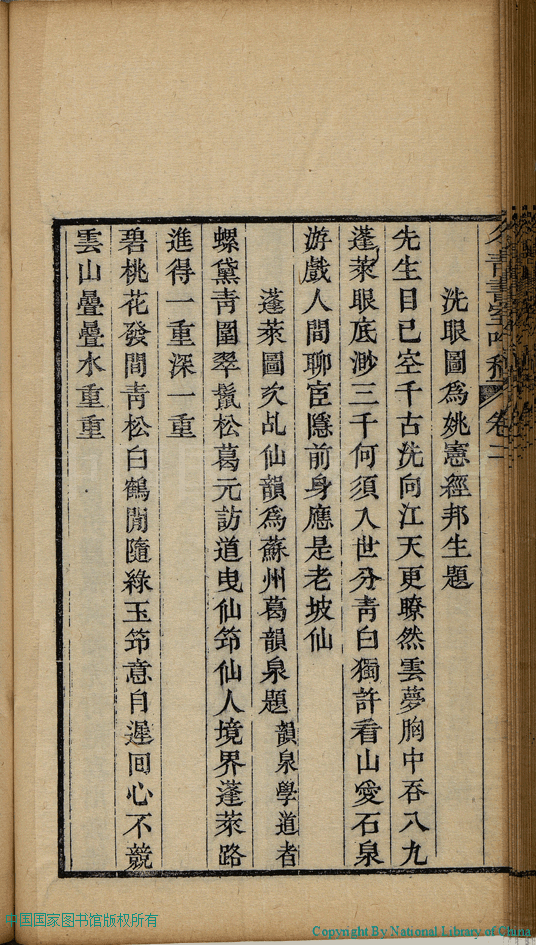 洗眼圖爲姚憲經邦生題
先生目已空千古洗向江天更瞭然雲夢胸中吞八九
蓬萊眼底渺三千何須入世分靑白獨許看山愛石泉
游戲人間聊宦隱前身應是老坡仙
蓬萊圖次乩仙韻爲蘇州葛韻泉題韻泉學道者
螺黛靑圍翠鬣松葛元訪道曳仙笻仙人境界蓬萊路
進得一重深一重
碧桃花發間靑松白鶴閒隨綠玉笻意自遲回心不競
雲山疊疊水重重
卷二
国国家图书馆版权所有
Copyright By National Library of China